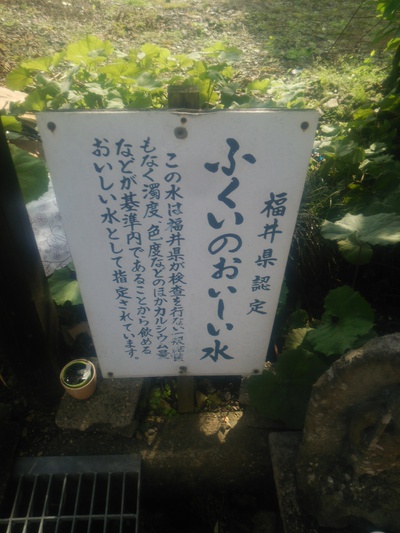 福井県認定
ふくいのおいしい水
この水は福井県が検査を行ない一般細菌
もなく濁度、色度などのほかカルシウム量
などが基準内であることから飲める
おいしい水として指定されています。